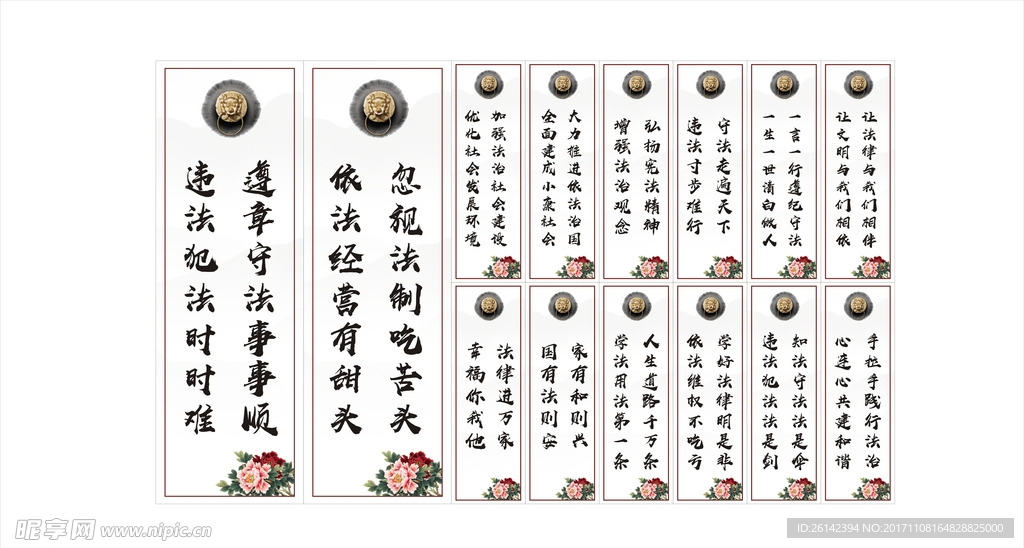 遵章守法事事顺
违法犯法时时难
忽视法制吃苦头
依法经营有甜头
加强法治社会建设
优化社会发展环境
大力推进依法治国
全面建成小康社会
弘扬宪法精神
增强法治观念
守法走遍天下
违法寸步难行
一言一行遵纪守法
一生一世清白做人
让法律与我们相伴
让文明与我们相依
法律进万家
幸福你我他
家有和则兴
国有法则安
人生道路千万条
学法用法第一条
学好法律明是非
依法维权不吃亏
知法守法法是伞
违法犯法法是剑
手拉手践行法治
心连心共建和谐
昵享网 www.nipic.cn
ID:26142394 NO:20171108164828825000